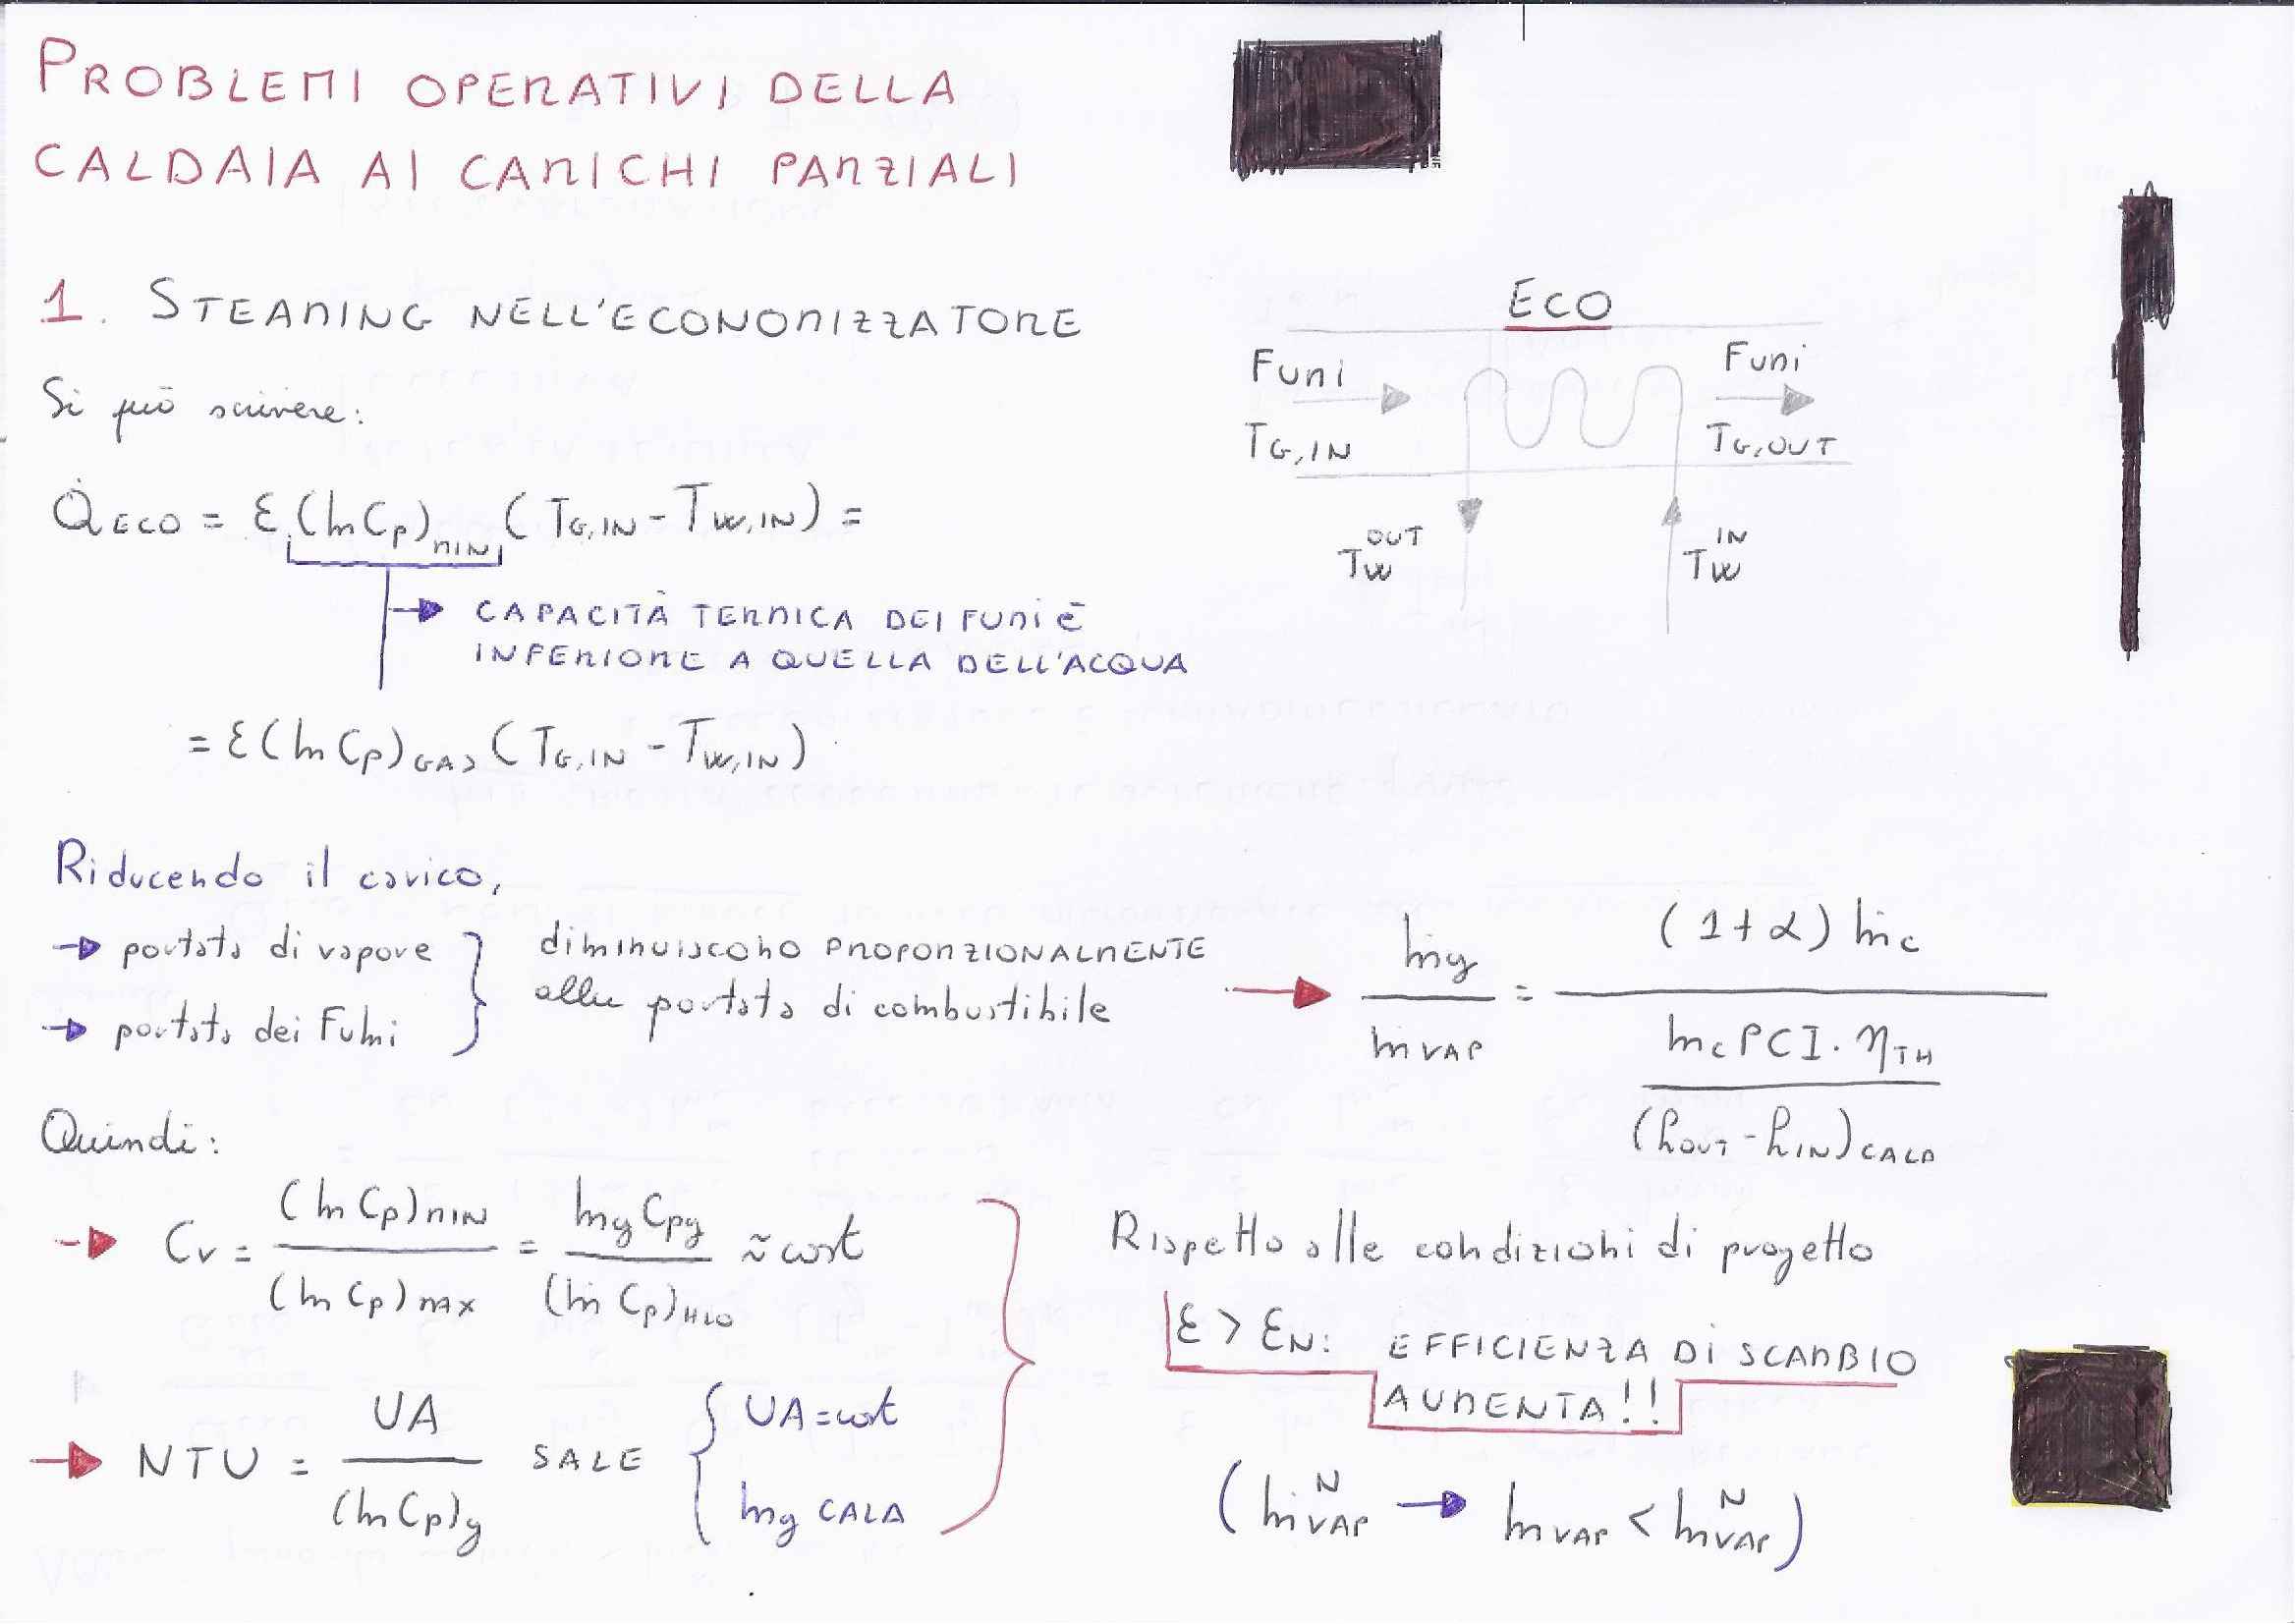 PROBLEMI OPERATIVI DELLA
CALDAIA AI CARICHI PARZIALI
1. STEAMING NELL'ECONOMIZZATORE
Si può scrivere:
Q̇ECO = ε (ṁCp)MIN (TG,IN - TW,IN) =
CAPACITÀ TERMICA DEI FUMI È
INFERIORE A QUELLA DELL'ACQUA
= ε (ṁ Cp)GAS (TG,IN - TW,IN)
ECO
FUMI
FUMI
TG,IN
TG,OUT
TW OUT
TW IN
Riducendo il carico,
→ portata di vapore
→ portata dei Fumi
diminuiscono PROPORZIONALMENTE
alla portata di combustibile
→ ṁg / ṁVAP = (1+α) ṁc / (ṁc PCI · ηTH / (hOUT - hIN)CALD)
Quindi:
→ Cr = (ṁ Cp)MIN / (ṁ Cp)MAX = ṁg Cpg / (ṁ Cp)H2O ≃ cost
→ NTU = UA / (ṁ Cp)g SALE { UA = cost
ṁg CALA
Rispetto alle condizioni di progetto
ε > εN: EFFICIENZA DI SCAMBIO
AUMENTA!!
(ṁVAP N → ṁVAP < ṁVAP N)